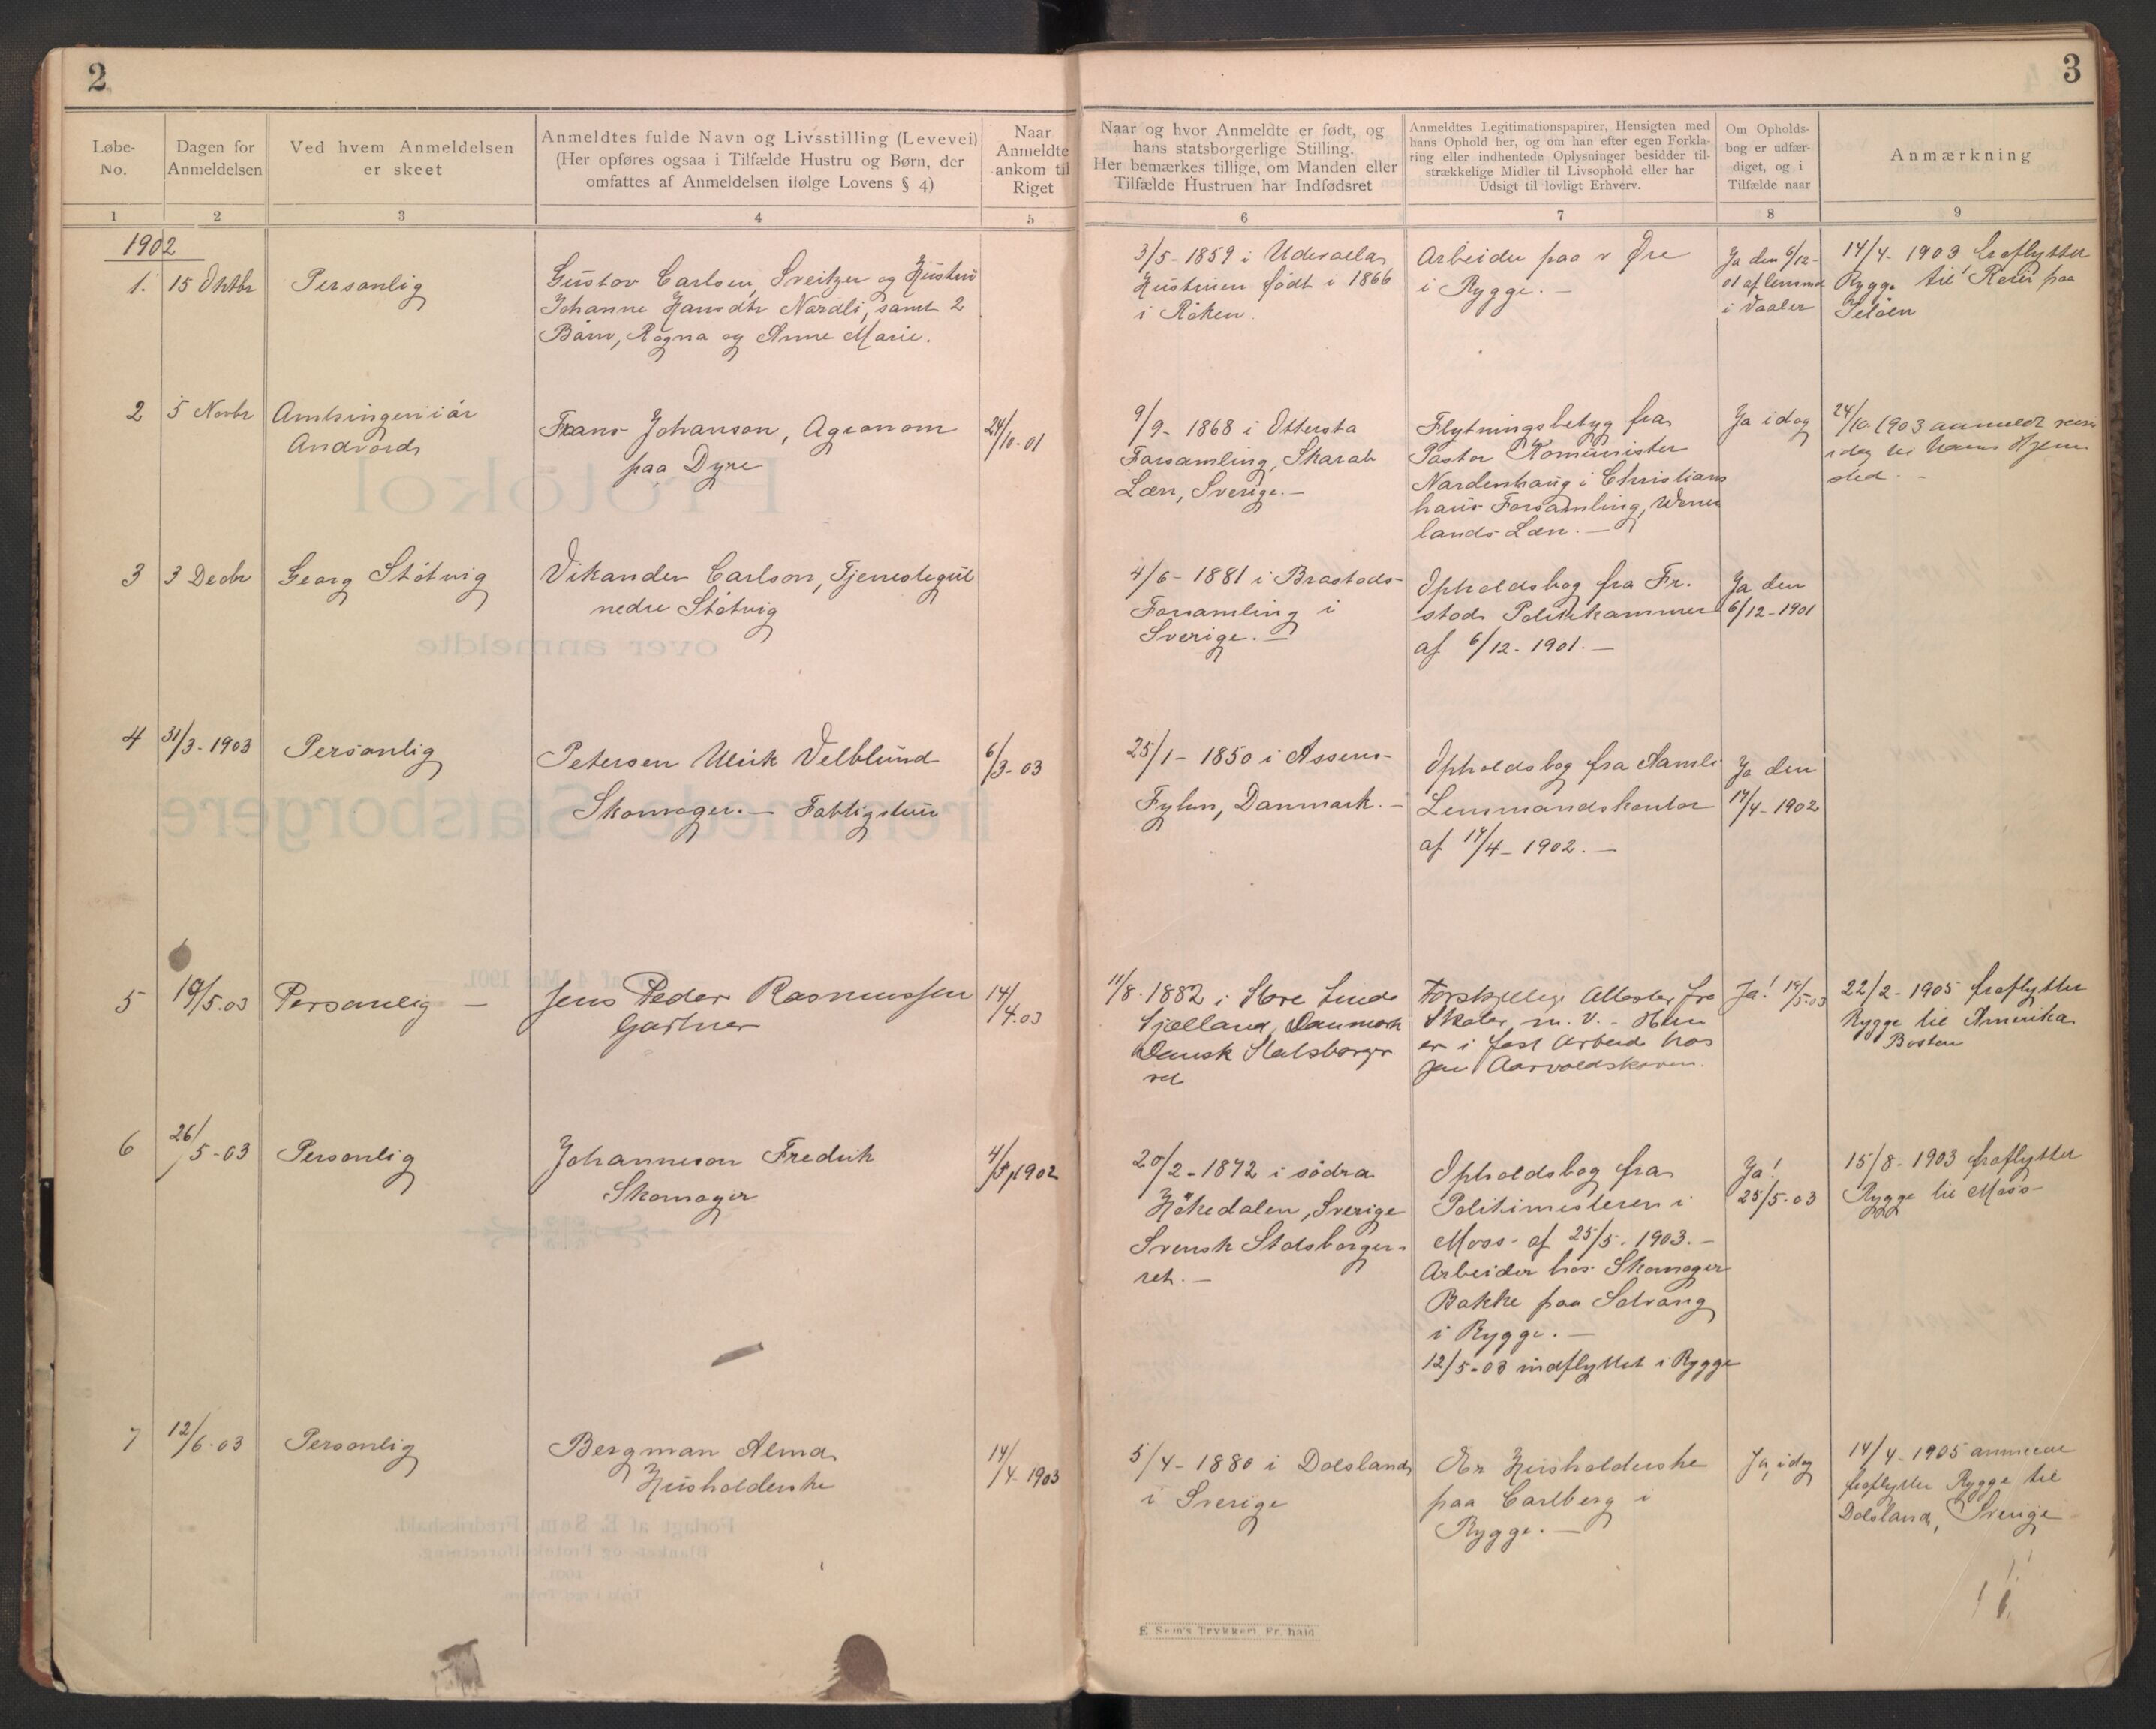 2
Løbe-
No.
Dagen for
Anmeldelsen
Ved hvem Anmeldelsen
er skeet
Anmeldtes fulde Navn og Livsstilling (Levevei)
(Her opføres ogsaa i Tilfælde Hustru og Børn, der
omfattes af Anmeldelsen ifølge Lovens § 4)
Naar
Anmeldte
ankom til
Riget
1
2
3
4
5
1902
1. 15 Oktbr Personlig
Gustav Carlsen, Sveitzer og Hustru
Johanne Hansdtr Nordli, samt 2
Børn, Ragna og Anne Marie.
2 5 Novbr Amtsingeniiør
Andvords
Frans Johanson, Agronom
paa Dyre
24/10-01
3 3 Decbr Georg Støtvig
Vikander Carlson, Tjenestegut
nedre Støtvig
4 31/3-1903 Personlig
Petersen Ulrik Velblund
Skomager.— Fattigslem
6/3-03
5 19/5.03 Personlig —
Jens Peder Rasmussen
Gartner
14/4.03
6 26/5-03 Personlig
Johanneson Fredrik
Skomager
4/5 1902
7 12/6.03 Personlig
Bergman Alma
Husholderske
14/4-1903
3
Naar og hvor Anmeldte er født, og
hans statsborgerlige Stilling.
Her bemærkes tillige, om Manden eller
Tilfælde Hustruen har Indfødsret
Anmeldtes Legitimationspapirer, Hensigten med
hans Ophold her, og om han efter egen Forkla-
ring eller indhentede Oplysninger besidder til-
strækkelige Midler til Livsophold eller har
Udsigt til lovligt Erhverv.
Om Opholds-
bog er udfær-
diget, og i
Tilfælde naar
Anmærkning
6
7
8
9
3/5-1859 i Udevaela
Hustruen født i 1866
i Röken.
Arbeider paa v Øre
i Rygge.—
Ja den 6/12-
01 af lensmd
i Vaaler
14/4-1903 fraflytter
Rygge til Röer paa
Jeløen
9/9-1868 i Ottersta
Forsamling, Skarab
Læn, Sverige.—
Flytningsbetyg fra
Pastor Kominister
Nordenhaug i Christians
haus Forsamling, Werm
lands Læn.—
Ja idag
24/10 1903 anmeldt reise
idag til hans Hjem
sted.—
4/6-1881 i Brastads-
Forsamling i
Sverige.—
Opholdsbog fra Fr.
stads Politikammer
af 6/12-1901.—
Ja den
6/12-1901
25/1-1850 i Assens-
Fyhn, Danmark.—
Opholdsbog fra Aamli
Lensmandskontor
af 17/4-1902.—
Ja den
17/4-1902
11/8.1882 i Store Linde
Sjælland, Danmark
Dansk Statsborger
ret
Forskjellige Attester fra
Skoler m. v. - Han
er i fast Arbeid hos
Aarvoldskoven.
Ja! 19/5.03
22/2-1905 fraflytter
Rygge til Amerika
Boston
20/2-1872 i södra
Hökedalen, Sverige
Svensk Statsborger-
ret.—
Opholdsbog fra
Politimesteren i
Moss- af 25/5-1903.—
Arbeider hos Skomager
Bakke paa Solvang
i Rygge.—
12/5-03 indflyttet i Rygge
Ja!
25/5-03
15/8-1903 fraflytter
Rygge til Moss-
5/4-1880 i Dalsland
i Sverige
Er Husholderske
paa Carlberg i
Rygge.—
Ja, idag
14/4-1905 anmeldt
fraflytter Rygge til
Dalsland, Sverige
E Sem's Trykkeri Fr. hald